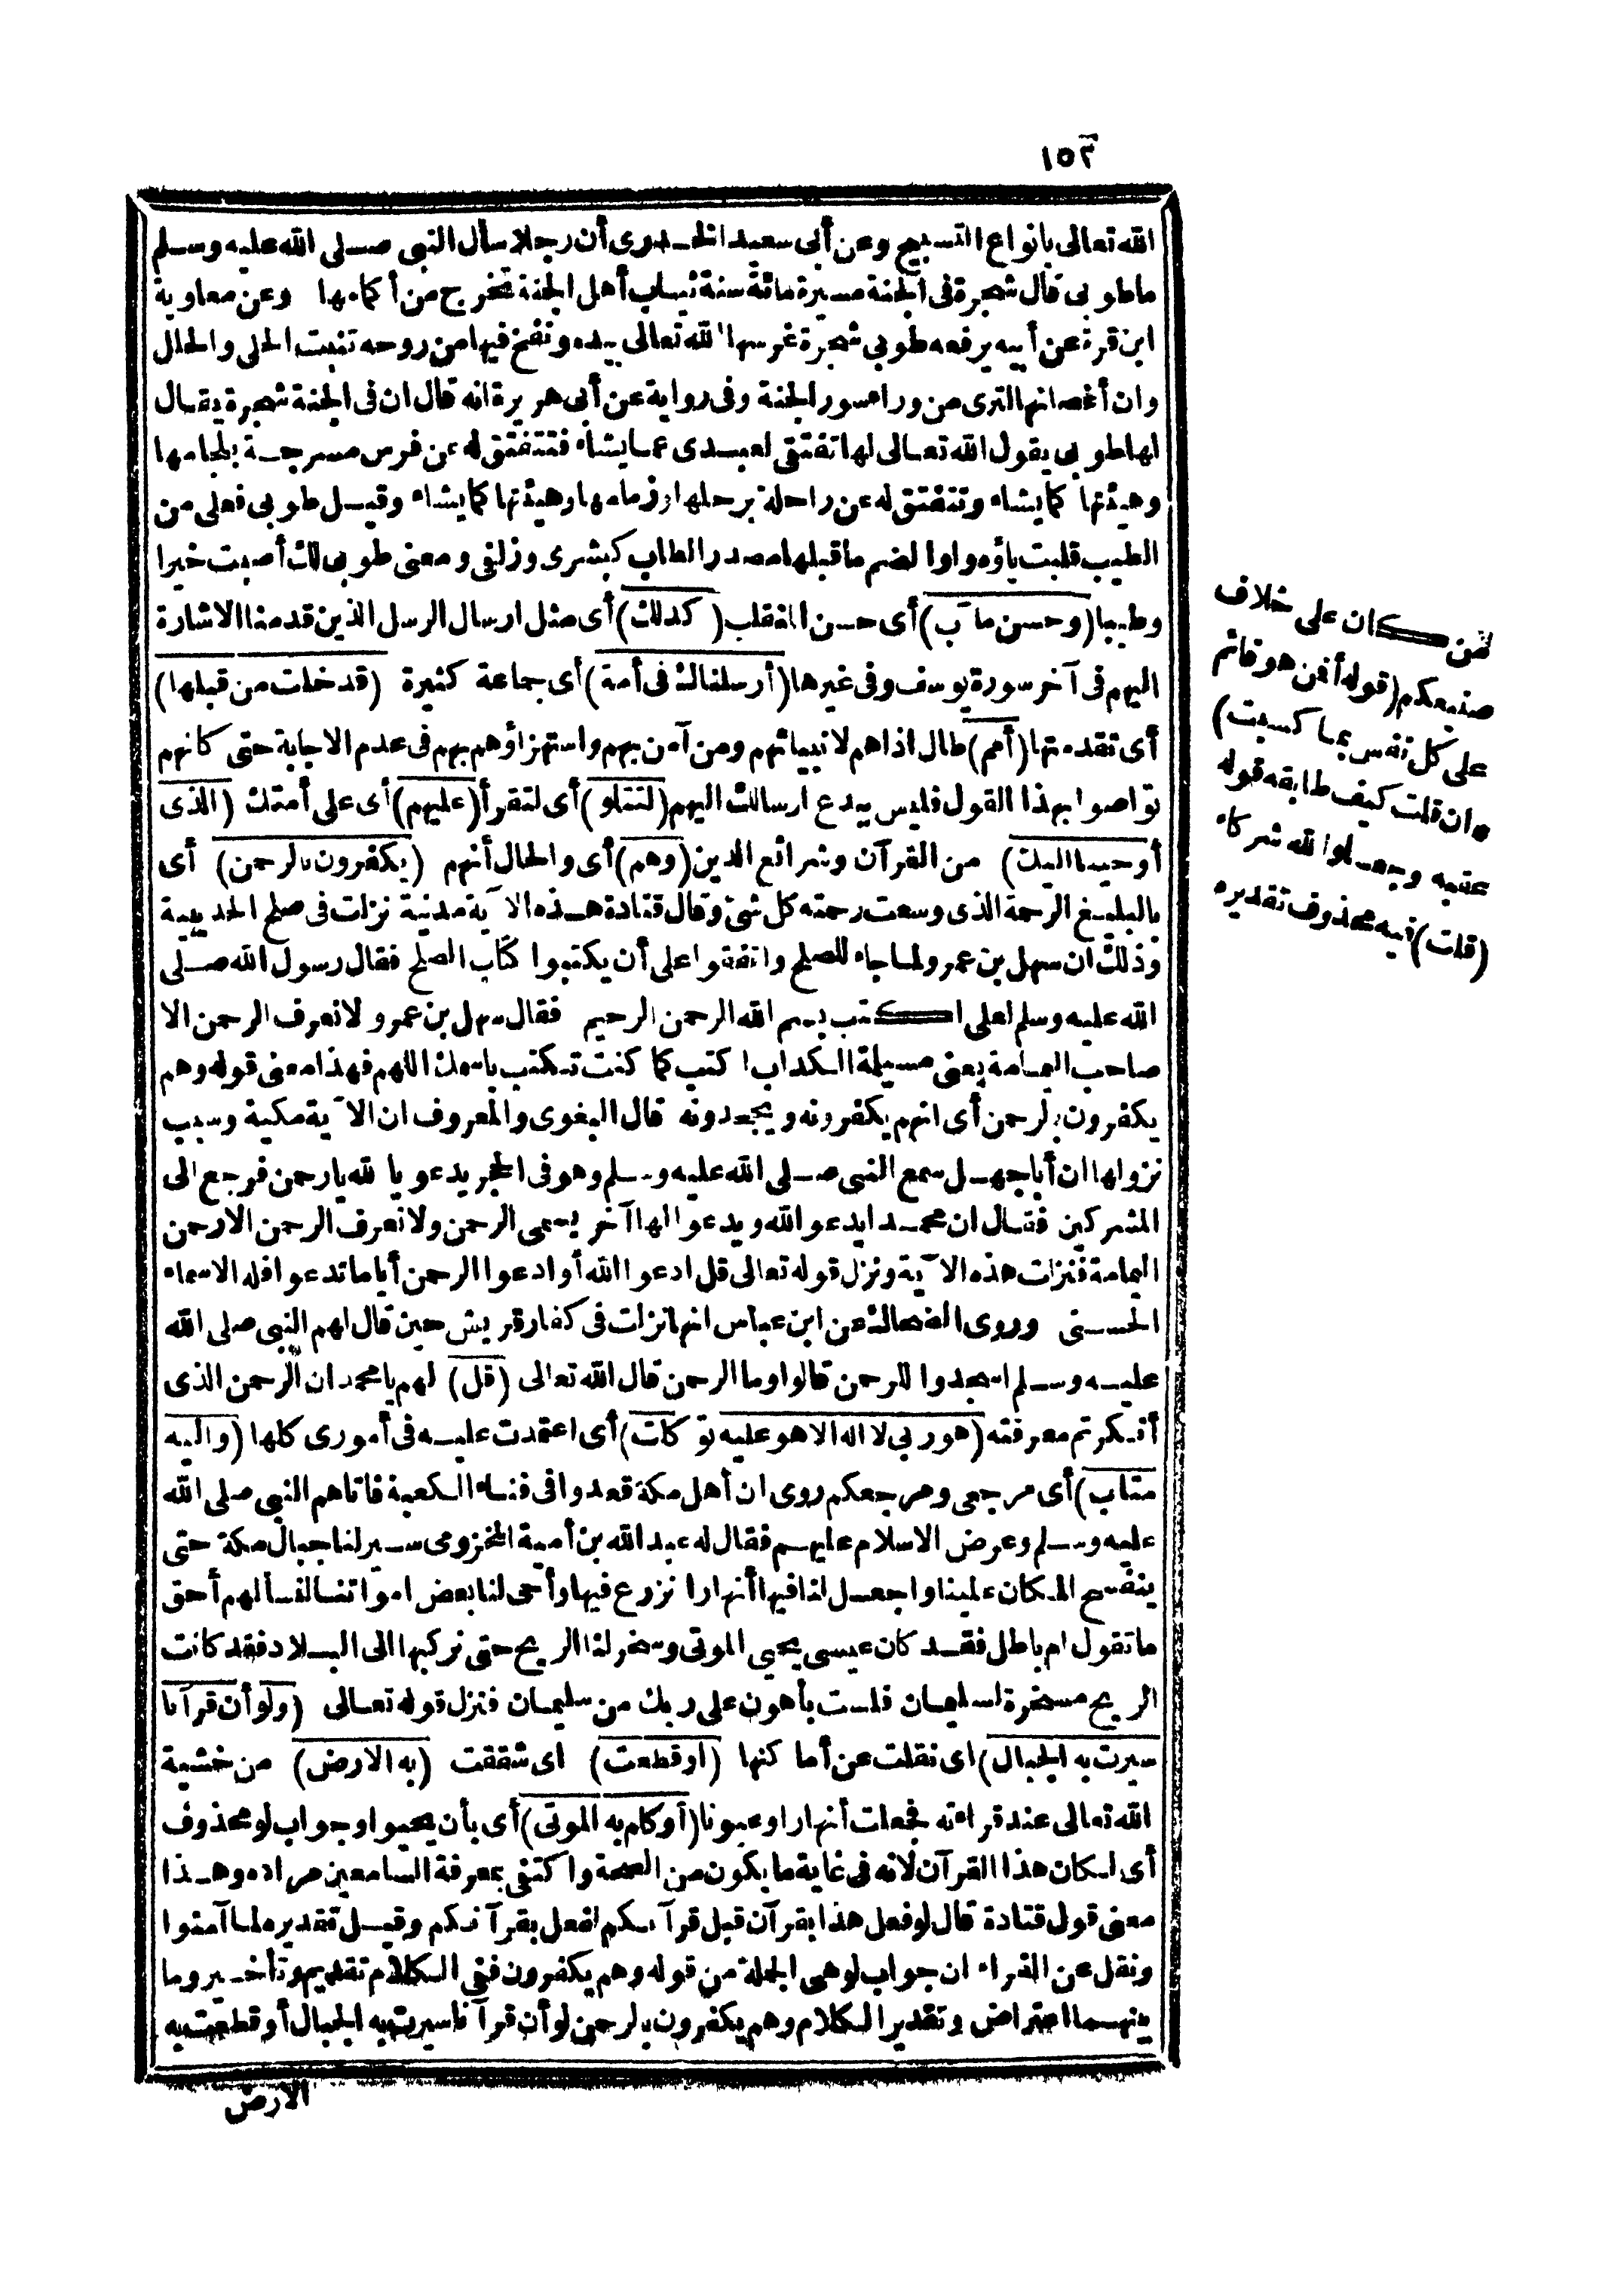 ١٥٣
الله تعالى بانواع التسبيح وعن أبى سعيد الخدرى أن رجلا سأل النبى صلى الله عليه وسلم
ما طوبى قال شجرة فى الجنة مسيرة مائة سنة ثياب أهل الجنة تخرج من أكمامها وعن معاوية
ابن قرة عن أبيه يرفعه طوبى شجرة غرسها الله تعالى بيده ونفخ فيها من روحه تنبت الحلى والحلل
وان أغصانها لترى من وراء سور الجنة وفى رواية عن أبى هريرة انه قال ان فى الجنة شجرة يقال
لها طوبى يقول الله تعالى لها تفتقى لعبدى عما يشاء فتتفتق له عن فرس مسرجة بلجامها
وهيئتها كما يشاء وتتفتق له عن راحلة برحلها وزمامها وهيئتها كما يشاء وقيل طوبى فعلى من
الطيب قلبت ياؤه واوا لضم ما قبلها مصدر الطاب كبشرى وزلفى ومعنى طوبى لك أصبت خيرا
وطيبا (وحسن مآب) أى حسن المنقلب (كذلك) أى مثل ارسال الرسل الذين قدمنا الاشارة
اليهم فى آخر سورة يوسف وفى غيرها (أرسلناك فى أمة) أى جماعة كثيرة (قد خلت من قبلها)
أى تقدمتها (أمم) طال اذاهم لانبيائهم ومن آمن بهم واستهزاؤهم بهم فى عدم الاجابة حتى كانهم
تواصوا بهذا القول فليس ببدع ارسالك اليهم (لتتلو) أى لتقرأ (عليهم) أى على أمتك (الذى
أوحينا اليك) من القرآن وشرائع الدين (وهم) أى والحال أنهم (يكفرون بالرحمن) أى
بالبليغ الرحمة الذى وسعت رحمته كل شئ وقال قتادة هذه الآية مدنية نزلت فى صلح الحديبية
وذلك ان سهل بن عمرو لما جاء للصلح واتفقوا على أن يكتبوا كتاب الصلح فقال رسول الله صلى
الله عليه وسلم لعلى اكتب بسم الله الرحمن الرحيم فقال سهل بن عمرو لا نعرف الرحمن الا
صاحب اليمامة يعنى مسيلمة الكذاب اكتب كما كنت تكتب باسمك اللهم فهذا معنى قوله وهم
يكفرون بالرحمن أى انهم يكفرونه ويجحدونه قال البغوى والمعروف ان الآية مكية وسبب
نزولها ان أبا جهل سمع النبى صلى الله عليه وسلم وهو فى الحجر يدعو يا الله يا رحمن فرجع الى
المشركين فقال ان محمدا يدعو الله ويدعو الها آخر يسمى الرحمن ولا نعرف الرحمن الا رحمن
اليمامة فنزلت هذه الآية ونزل قوله تعالى قل ادعوا الله أو ادعوا الرحمن أياما تدعوا فله الاسماء
الحسنى وروى الضحاك عن ابن عباس انها نزلت فى كفار قريش حين قال لهم النبى صلى الله
عليه وسلم اسجدوا للرحمن قالوا وما الرحمن قال الله تعالى (قل) لهم يا محمد ان الرحمن الذى
أنكرتم معرفته (هو ربى لا اله الا هو عليه توكلت) أى اعتمدت عليه فى أمورى كلها (واليه
متاب) أى مرجعى ومرجعكم روى ان أهل مكة قعدوا فى فناء الكعبة فاتاهم النبى صلى الله
عليه وسلم وعرض الاسلام عليهم فقال له عبد الله بن أمية المخزومى سير لنا جبال مكة حتى
ينفسح المكان علينا واجعل لنا فيها أنهارا نزرع فيها وأحى لنا بعض امواتنا لنسألهم أحق
ما تقول ام باطل فقد كان عيسى يحيى الموتى وسخر لنا الريح حتى نركبها الى البلاد فقد كانت
الريح مسخرة لسليمان فلست بأهون على ربك من سليمان فنزل قوله تعالى (ولو أن قرآنا
سيرت به الجبال) اى نقلت عن أماكنها (او قطعت) اى شققت (به الارض) من خشية
الله تعالى عند قراءته فجعلت أنهارا وعيونا (أو كلم به الموتى) أى بأن يحيوا وجواب لو محذوف
أى لكان هذا القرآن لانه فى غاية ما يكون من الصحة واكتفى بمعرفة السامعين مراده وهذا
معنى قول قتادة قال لو فعل هذا بقرآن قبل قرآنكم لفعل بقرآنكم وقيل تقديره لما آمنوا
ونقل عن الفراء ان جواب لو هى الجملة من قوله وهم يكفرون ففى الكلام تقديم وتأخير وما
بينهما اعتراض وتقدير الكلام وهم يكفرون بالرحمن لو أن قرآنا سيرت به الجبال أو قطعت به
الارض
لمن كان على خلاف
صنيعكم (قوله أفمن هو قائم
على كل نفس بما كسبت)
\* ان قلت كيف طابقه قوله
عقبه وجعلوا لله شركاء
(قلت) فيه محذوف تقديره